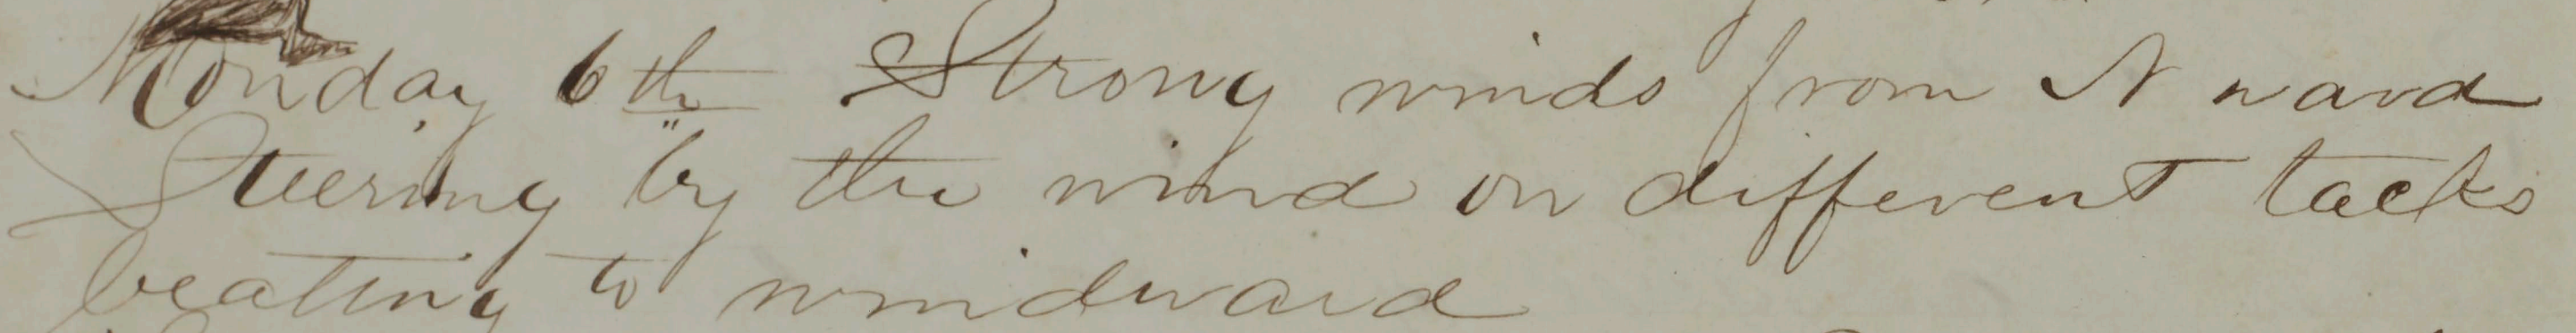 Monday 6th Strong winds from N ward
Steering by the wind on different tacks
beating to windward